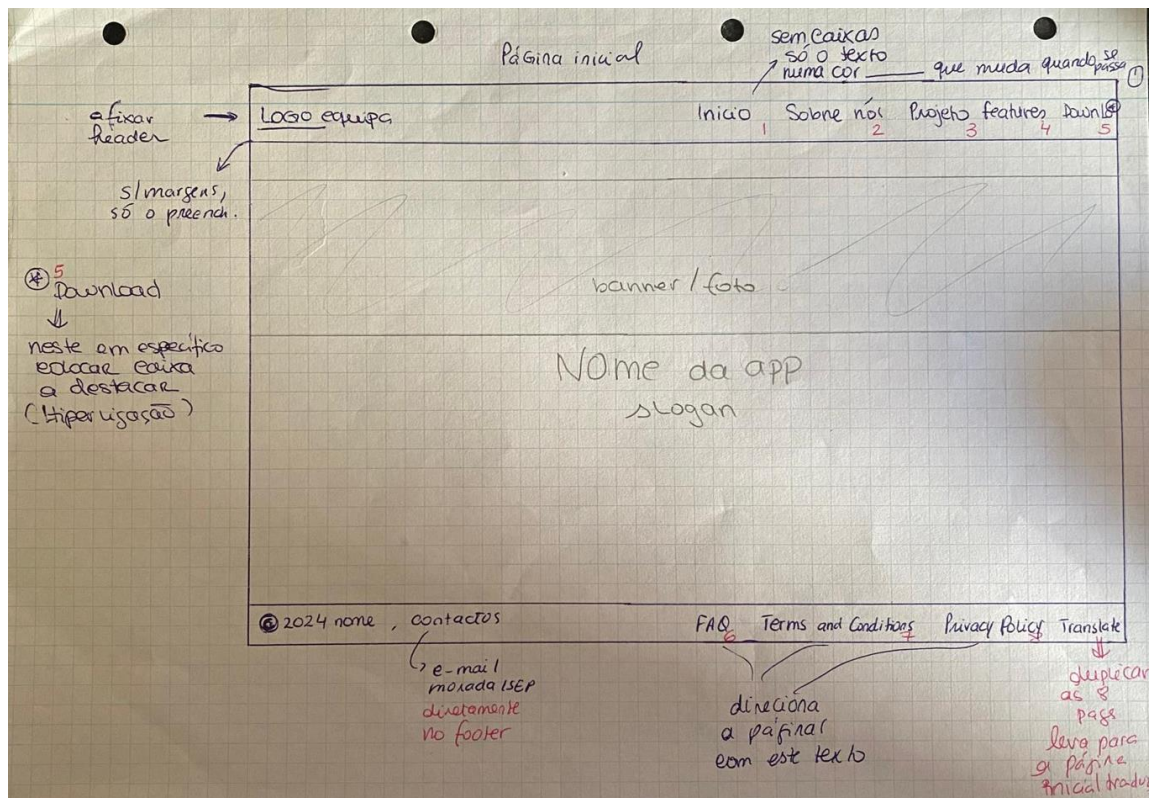 Página inicial
sem caixas
só o texto
numa cor ______ que muda quando se passa
1
afixar
header
LOGO equipa
Inicio Sobre nós Projeto features Downl
1 2 3 4 5
s/margens,
só o preench.
* 5
Download
neste em específico
colocar caixa
a destacar
(Hiperligação)
banner / foto
Nome da app
slogan
© 2024 nome , contactos
FAQ Terms and Conditions Privacy Policy Translate
6 7
e-mail
morada ISEP
diretamente
no footer
direciona
a páginas
com este texto
duplicar
as 8
pags
leva para
a página
inicial